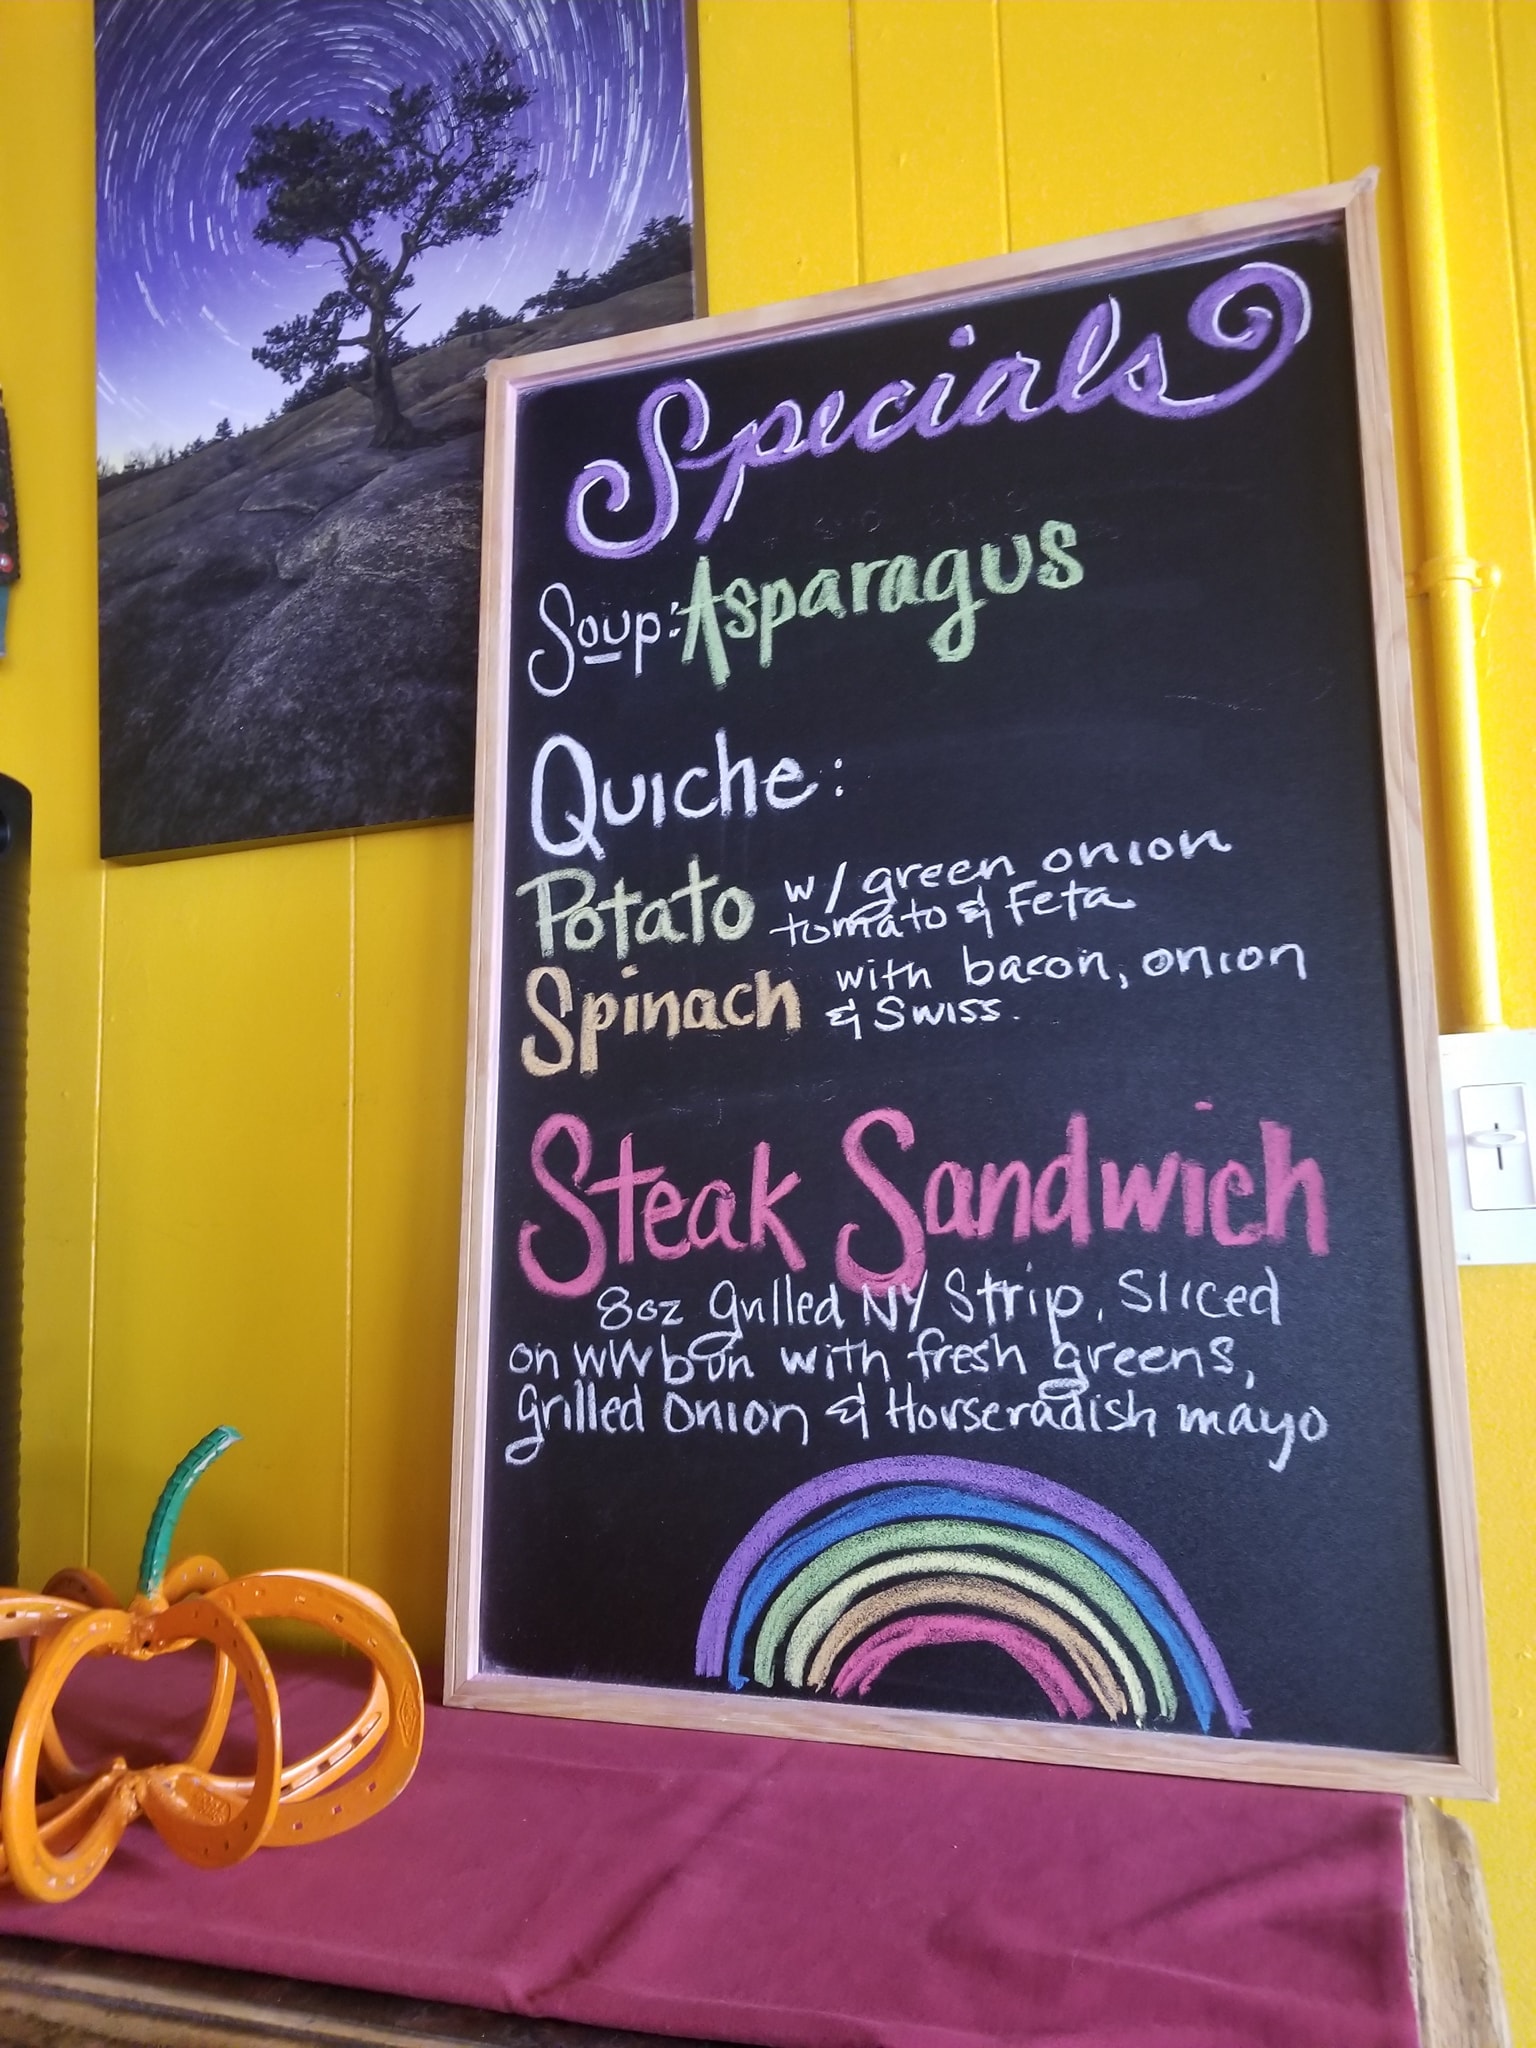 Specials
Soup: Asparagus
Quiche:
Potato w/ green onion
tomato & Feta
Spinach with bacon, onion
& Swiss.
Steak Sandwich
8oz Grilled NY Strip, Sliced
on WW bun with fresh greens,
Grilled Onion & Horseradish mayo